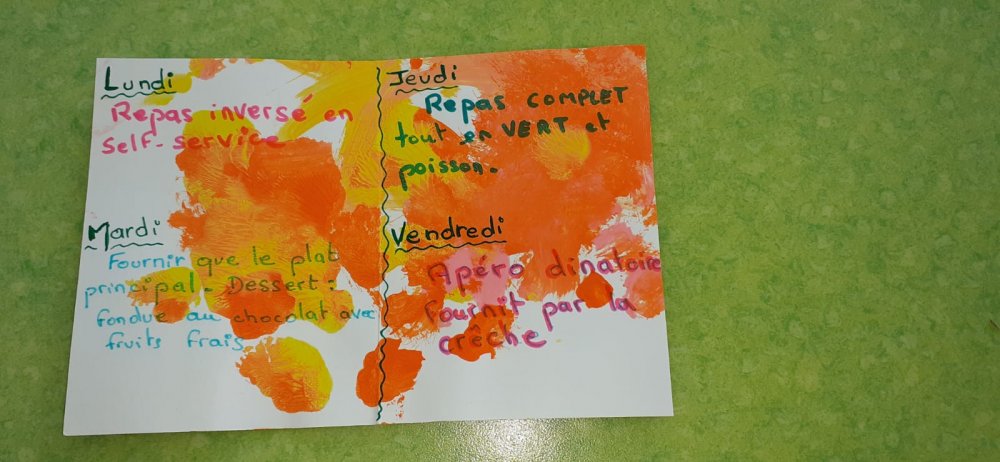 Lundi
Repas inversé en
self-service
Mardi
Fournir que le plat
principal. Dessert :
fondue au chocolat avec
fruits frais
Jeudi
Repas COMPLET
tout en VERT et
poisson.
Vendredi
Apéro dinatoire
fournit par la
crêche